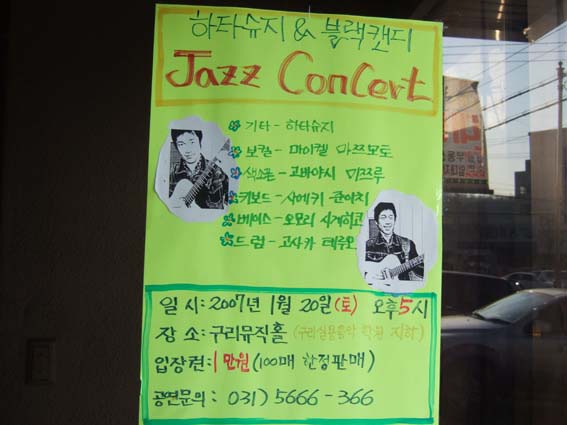 하타슈지 & 블랙캔디
Jazz Concert
기타 - 하타슈지
보컬 - 마이켈 마쯔모토
색소폰 - 고바야시 미쯔루
키보드 - 사에키 준이치
베이스 - 오모리 시게히코
드럼 - 고사카 테루오
일시 : 2007년 1월 20일 (토) 오후 5시
장소 : 구리뮤직홀 (구리실용음악 학원 지하)
입장권 : 1만원 (100매 한정판매)
공연문의 : 031) 5666-366